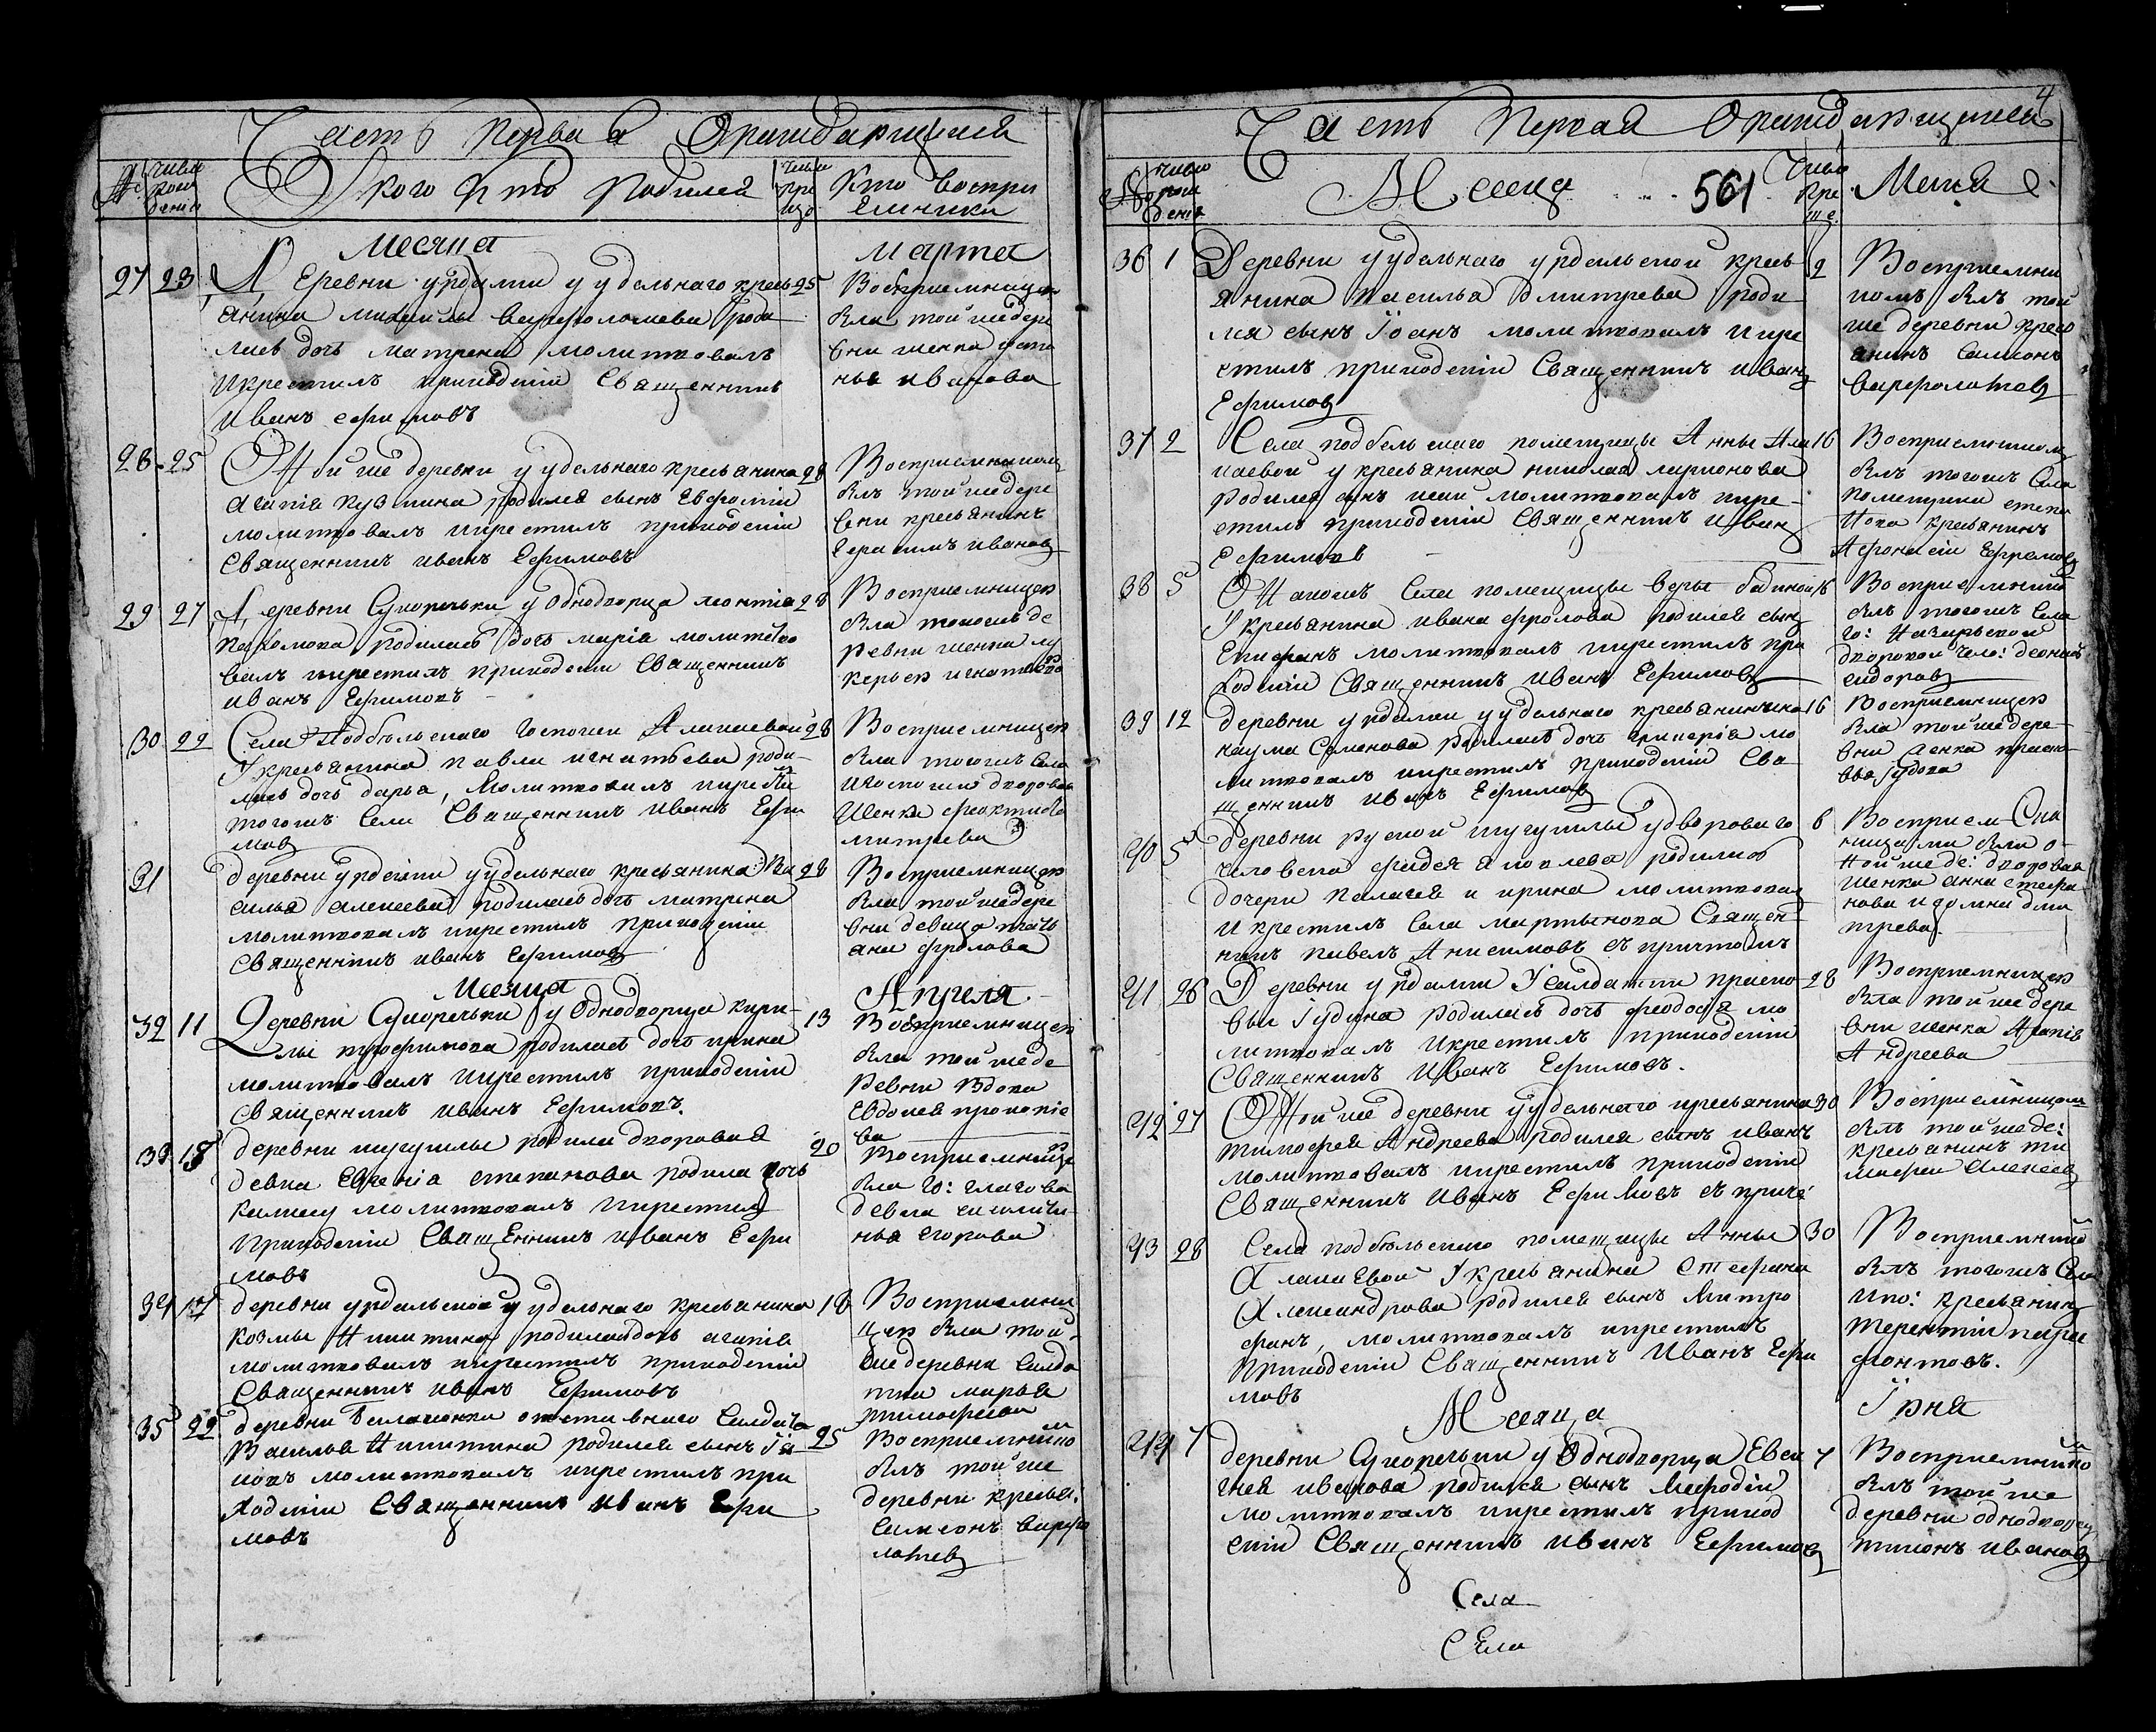 Часть первая ораждающихся
№
числа рождения
У кого кто родился
числа крещ
Кто восприемники
Месяца марта
27 23 Деревни урдали у удельнаго кресть 25
янина михаилы варфоломеева роди
лась дочь матрена молитвовалъ
икрестилъ приходскій Священникъ
Иванъ ефимовъ
Восприемницею
была той жедере
вни женка
нья иванова
28 25 Той же деревни у удельнаго крестьянина 28
кузмина родился сынъ Евфимій
молитвовалъ икрестилъ приходскій
Священникъ иванъ Ефимовъ
Восприемникомъ
былъ той жедере
вни крестьянинъ
Герасимъ ивановъ
29 27 Деревни Сухоречки у Однодворца леонтія 28
пахомова родилась дочь марія молитво
валъ икрестилъ приходскій Священникъ
иванъ Ефимовъ
Восприемницею
была тойже де
ревни женка лу
керья игнатова
30 22 Села Подбельскаго Госпожи Алакаевой 28
У крестьянина павла игнатьева роди
лась дочь дарья, Молитвовалъ икрести
тогожъ Села Священникъ Иванъ Ефи
мовъ
Восприемницею
была тогожъ села
игоспожи дворовая
Женка
митрева
31 деревни урдали у удельнаго крестьянина Ва 28
силья алексеева родилась дочь матрена
молитвовалъ икрестилъ приходскій
Священникъ иванъ Ефимовъ
Восприемницею
была той жедере
вни девица тать
яна фролова
Месяца Апреля
32 11 Деревни Сухоречки у Однодворца кири- 13
лы трофимова родилась дочь ирина
молитвовалъ икрестилъ приходскій
Священникъ иванъ Ефимовъ.
Восприемницею
была той жеде
ревни вдова
Евдокея прокопіе
ва
33 18 деревни шугуилы родила дворовая 20
девка Евгенія степанова родила дочь
молитвовалъ икрестилъ
приходскій Священникъ иванъ Ефи
мовъ
Восприемнице
была го: глазова
девка
нья егорова
34 17 деревни урдальской у удельнаго крестьянина 18
козмы Никитина родиласдочь агапія
молитвовалъ икрестилъ приходскій
Священникъ иванъ Ефимовъ
Восприемни
цею была той-
же деревни салда
тка марья
тимофеева
35 22 деревни отставнаго салдата 25
Василья Никитина родился сынъ Iа
ковъ молитвовалъ икрестилъ при
ходскій Священникъ иванъ Ефи
мовъ
Восприемнико
былъ той же
деревни крестья:
симеонъ варфо
ломеев
Часть первая ораждающихся 4
№
число рождения
Месяца 561
Число креще
Мая
36 1 Деревни у удельнаго урдальской кресть 2
янина василья дмитрева роди
лся сынъ Iоанъ молитвовалъ икре
стилъ приходскій Священникъ иванъ
Ефимовъ
Восприемни
комъ былъ той
же деревни крест
янинъ Симионъ
варфоломеев
37 2 Села подбельскаго помещицы Анны Ала 16
каевой у крестьянина николая ларионова
родился сынъ молитвовалъ икре-
стилъ приходскій Священникъ Иванъ
Ефимовъ
Восприемникомъ
былъ тогожъ Села
помещика
крестьянинъ
Афонасій Ефремовъ
38 5 Тогожъ Села помещицы веры 16
У крестьянина ивана фролова родился сынъ
Епифанъ молитвовалъ икрестилъ при
ходскій Священникъ иванъ Ефимовъ
Восприемнико
былъ тогожъ Села
дворовой чело:
сидоровъ
39 12 деревни урдали у удельнаго крестьянинина 16
наума Семенова родилась дочь гликерія мо
литвовалъ икрестилъ приходскій Свя
щенникъ иванъ Ефимовъ
Восприемницею
была той жедере-
вни женка праско-
вья Гудова
40 5 деревни руской шугуилы у двороваго 6
человека фадея яковлева родились
дочери палагея и ирина молитвовал
и крестилъ села мартынова Священ-
никъ павелъ Анисимовъ съ причтомъ
Восприем
ницами были о-
той же де: дворовая
женка анна стефа-
нова и домна дми
трева.
41 26 Деревни урдали У салдатки праско- 28
вьи Гудина родилась дочь феодосія мо
литвовалъ икрестилъ приходскій
Священникъ Иванъ Ефимовъ.
Восприемницею
была той же дере
вни женка Агапія
Андреева
42 27 Той же деревни у удельнаго крестьянина 30
тимофея Андреева родился сынъ иванъ
молитвовалъ икрестилъ приходскій
Священникъ Иванъ Ефимовъ съ приче
Восприемникомъ
былъ той же де:
крестьянинъ ти
мофеи Алексеевъ
43 28 Села подбельскаго помещицы Анны 30
Алакаевой У крестьянина Стефана
Александрова родился сынъ Митро
фанъ, молитвовалъ икрестилъ
Приходскій Священникъ Иванъ Ефи
мовъ
Восприемнико
былъ тогожъ села
ипо: крестьянинъ
терентій
фонтовъ.
Месяца Iюня
44 7 деревни Сухоречки у Однодворца Евси 7
гнея иванова родился сынъ Мефодій
молитвовалъ икрестилъ приход
скій Священникъ иванъ Ефимовъ
Восприемнико
былъ той же
деревни однодворец
тихонъ ивановъ
Села
Села